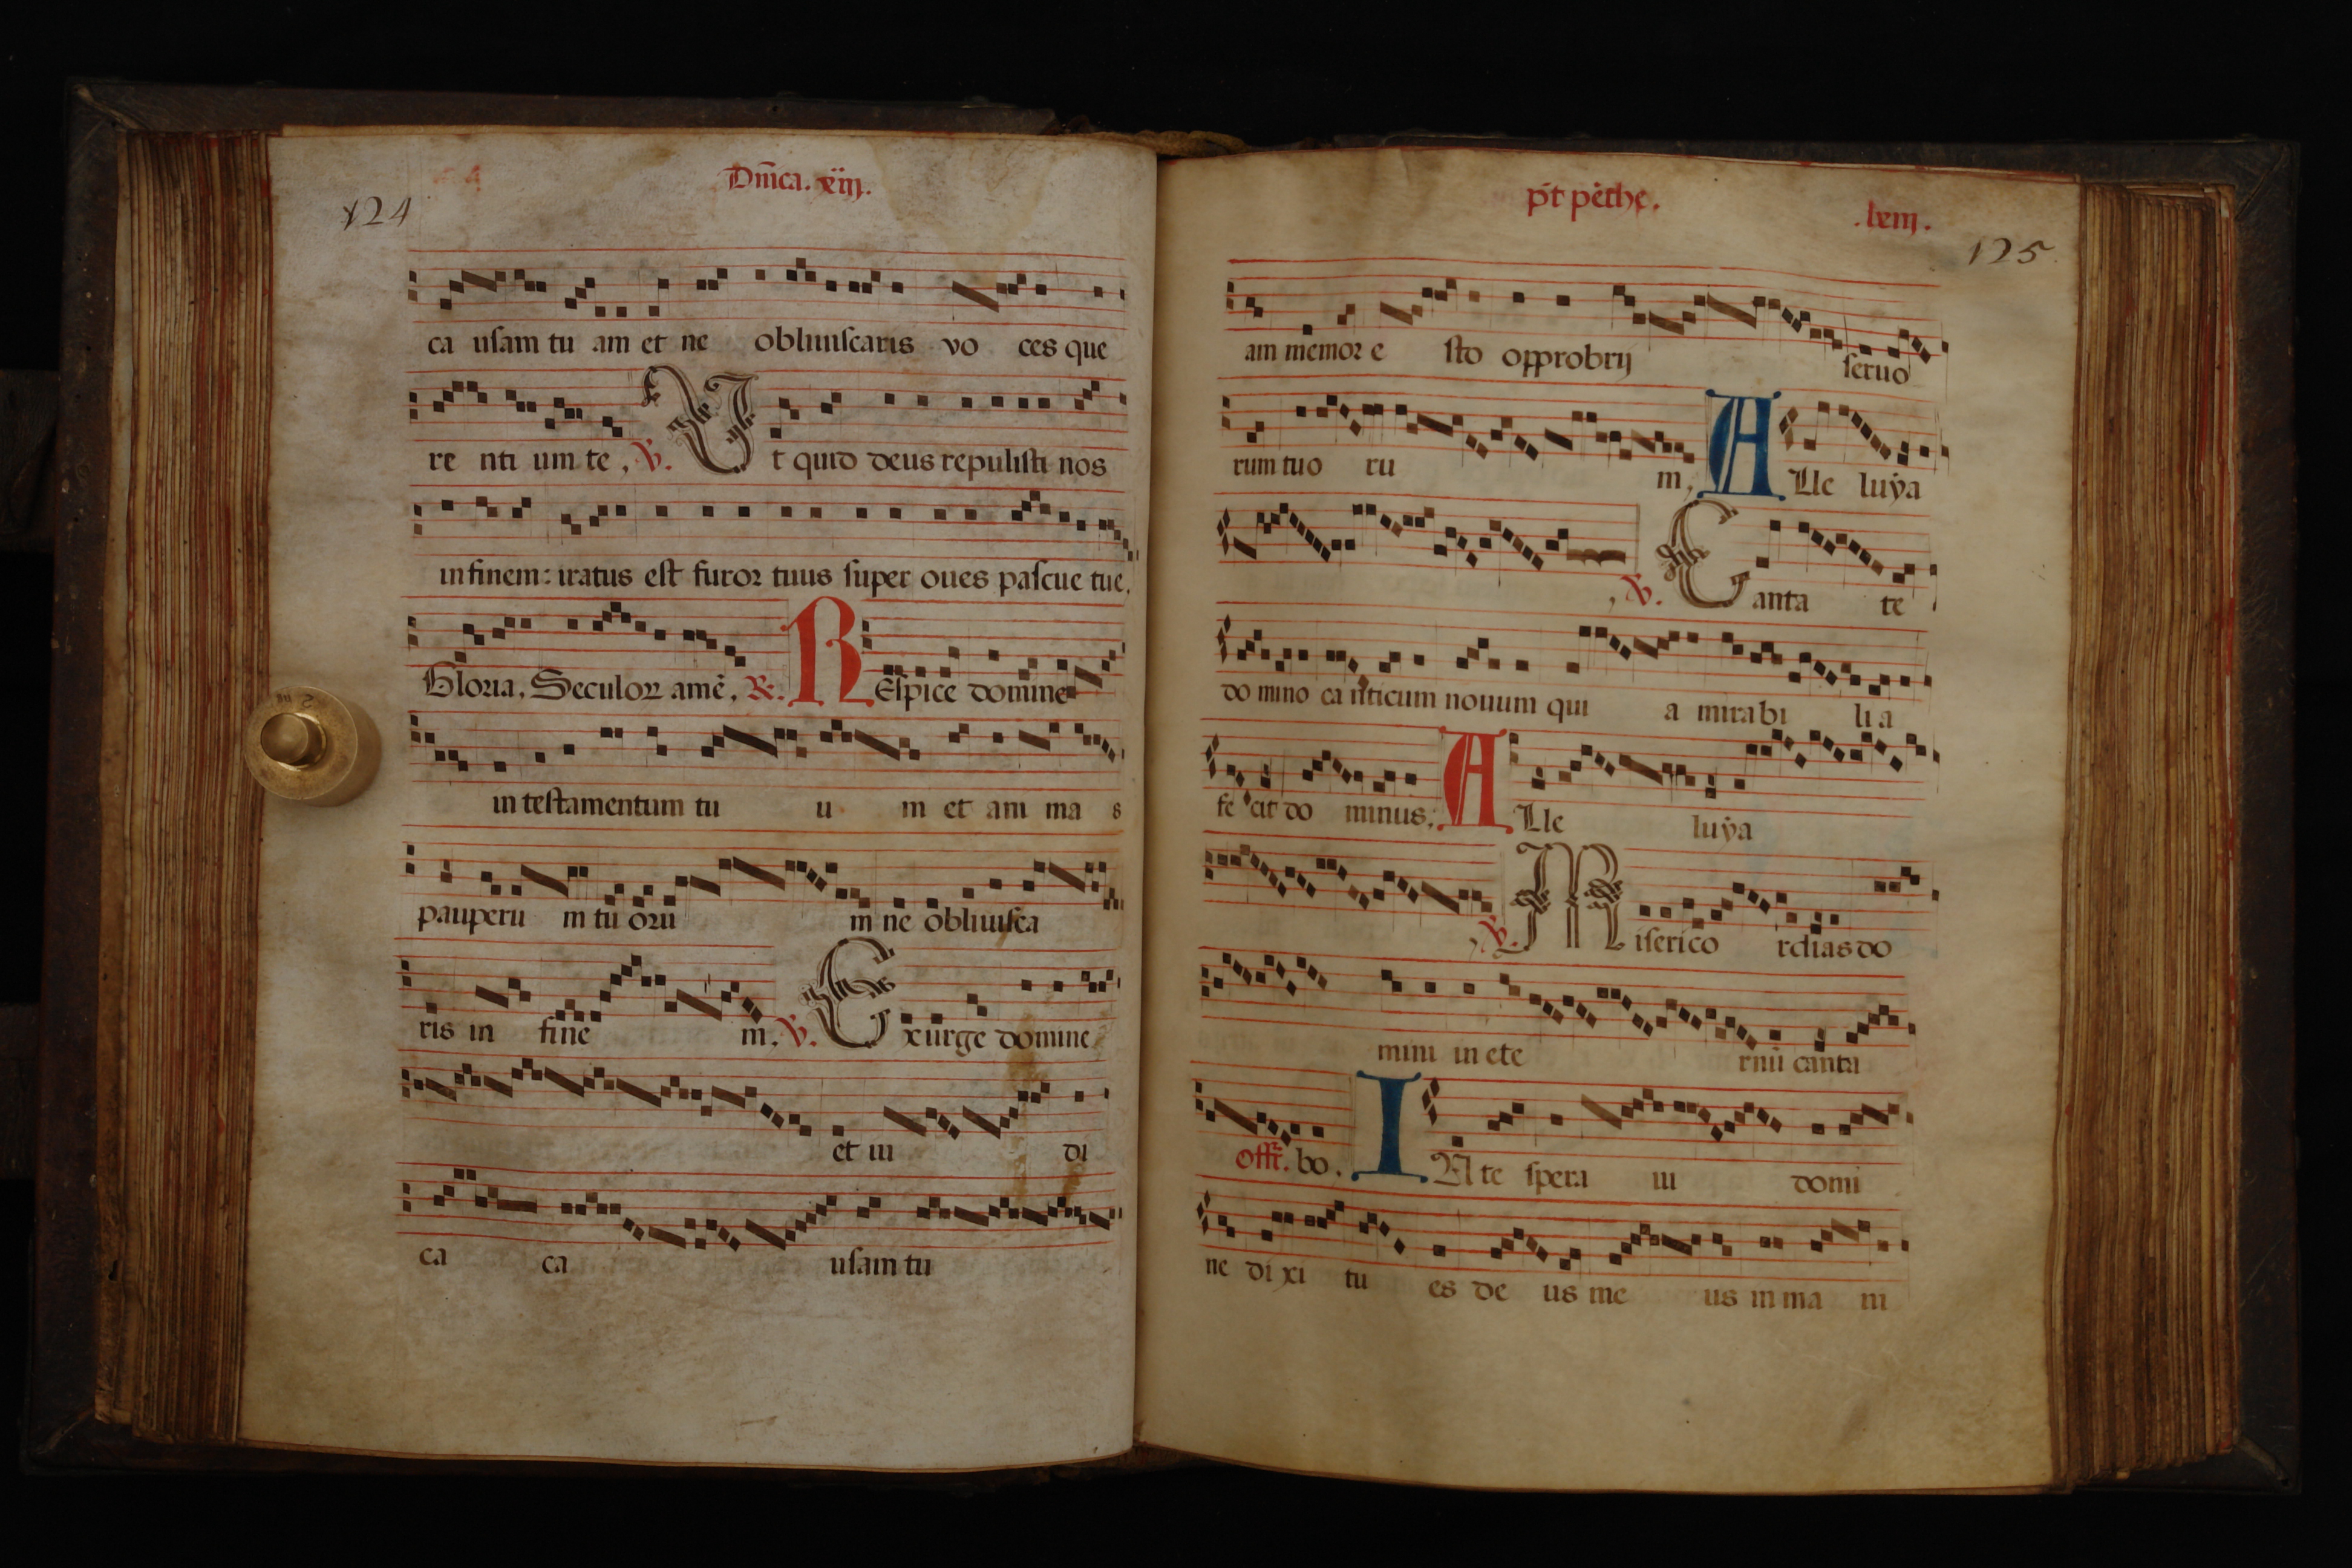 124
Dn̄ica. xiij.
ca usam tu am et ne obliuiscaris vo ces que
re nti um te, ℣. Vt quid deus repulisti nos
in finem: iratus est furor tuus super oues pascue tue.
Gloria. Seculoꝝ amē. ℟. REspice domine
in testamentum tu u m et ani ma s
pauperu m tu oꝛu m ne obliuisca
ris in fine m. ℣. Exurge domine
et iu di
ca ca usam tu
pt̄ pēthe.
.lxiij.
125
am memoꝛ e sto opprobrij seruo
rum tuo ru m, ALle luÿa
, ℣. Canta te
do mino ca nticum nouum qui a mirabi li a
fe cit do minus. ALle luÿa
, ℣. Miserico rdias do
mini in ete rnū canta
offr̄. bo. IN te spera ui domi
ne di xi tu es de us me us in ma ni